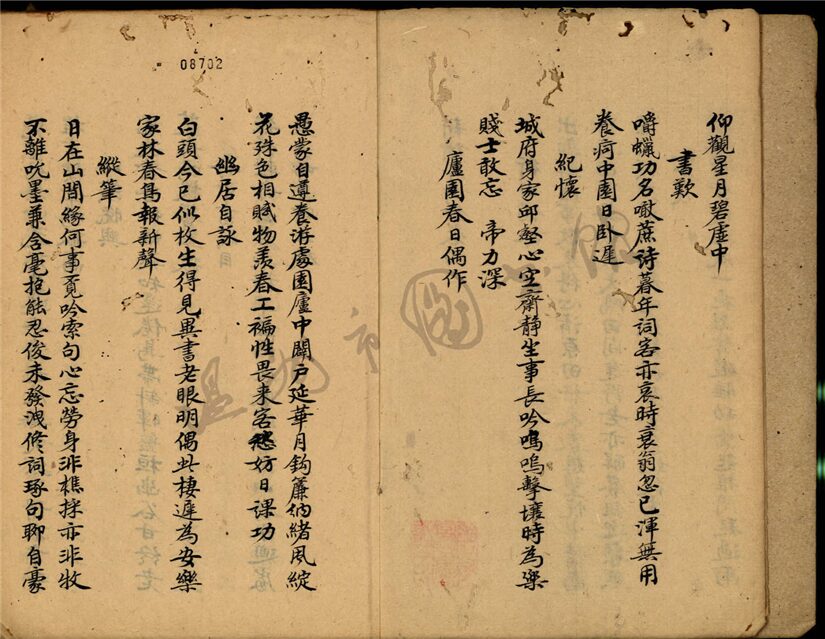 仰觀星月碧虛中
書歎
嚼蠟功名噉蔗詩暮年詞客亦哀時衰翁忽已渾無用
養疴中園日卧遲
紀懷
城府身家邱壑心空齋靜坐事長吟嗚嗚擊壤時為樂
賤士敢忘 帝力深
廬園春日偶作
08702
愚蒙自遵養游處園廬中闢戶延華月鈎簾納緒風綻
花殊色相賦物羨春工褊性畏來客愁妨日課功
幽居自詠
白頭今已似枚生得見異書老眼明偶此棲遲為安樂
家林春鳥報新聲
縱筆
日在山間緣何事覓吟索句心忘勞身非樵採亦非牧
不離吮墨兼含毫抱能忍俊未發洩修詞琢句聊自豪